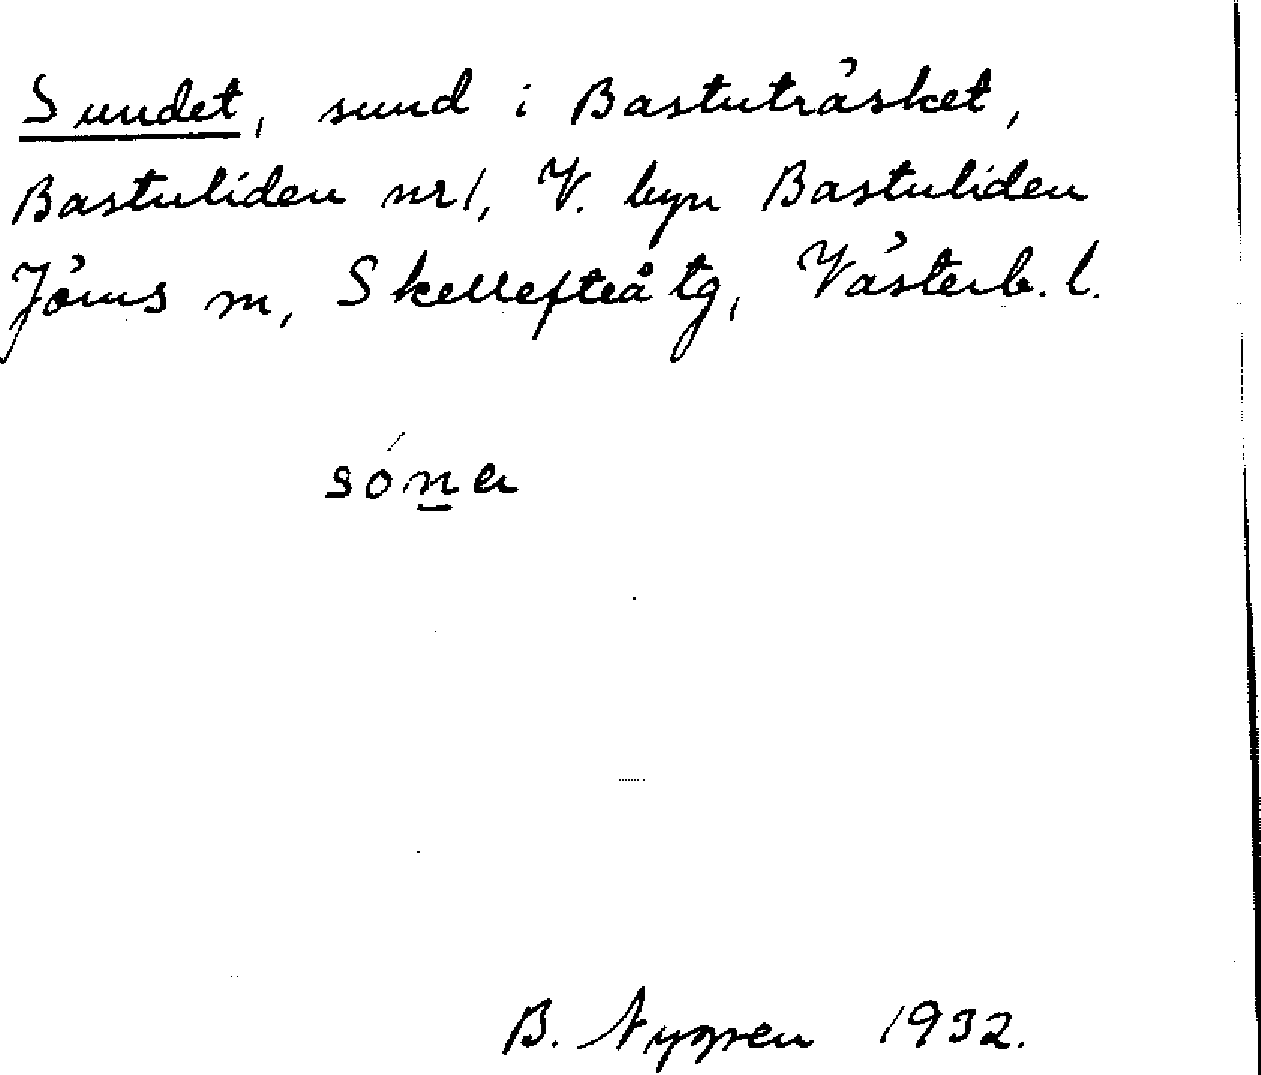 Sundet, sund i Bastuträsket,
Bastuliden nr 1, V. byn Bastuliden
Jörns m, Skellefteå tg, Västerb. l.
són̲a
B. Nygren 1932.